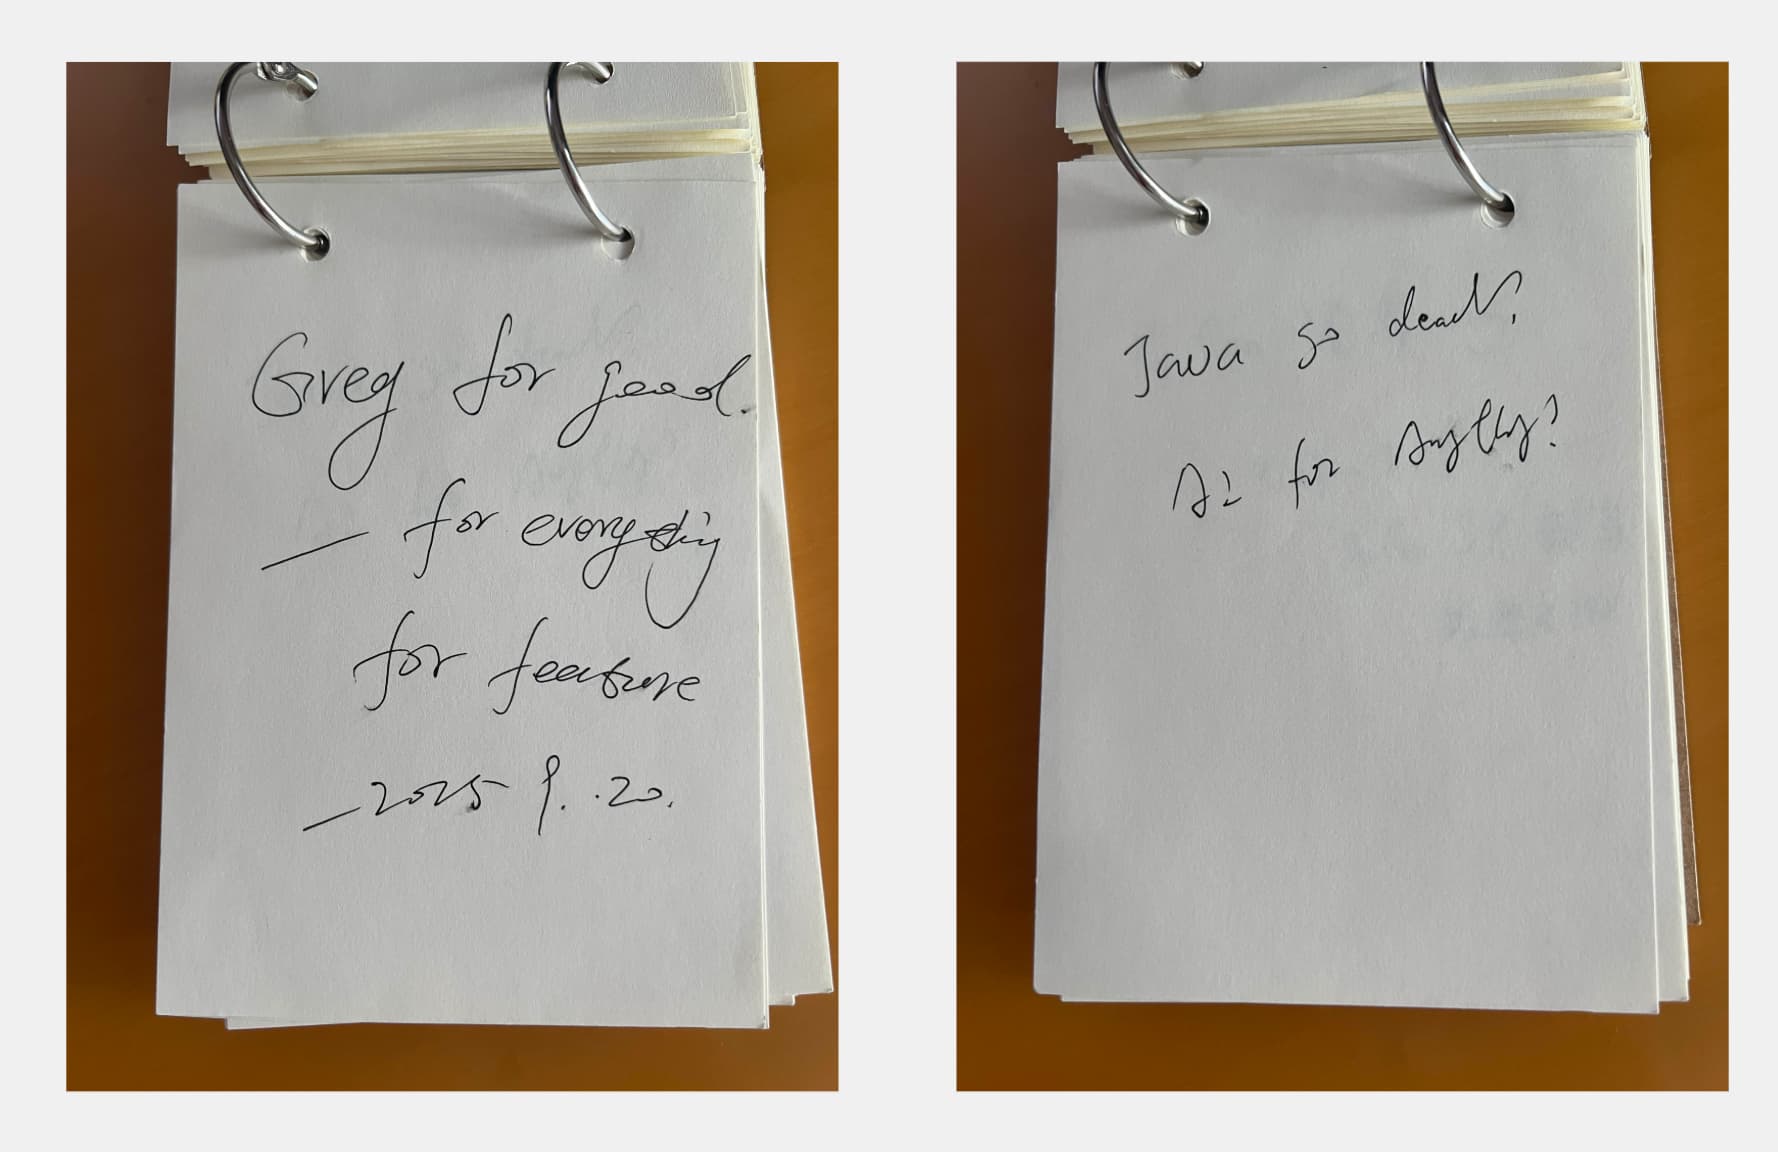 Greg for good.
— for everything
for feature
— 2025 9. .20.
Java go dead?
Ai for Anything?